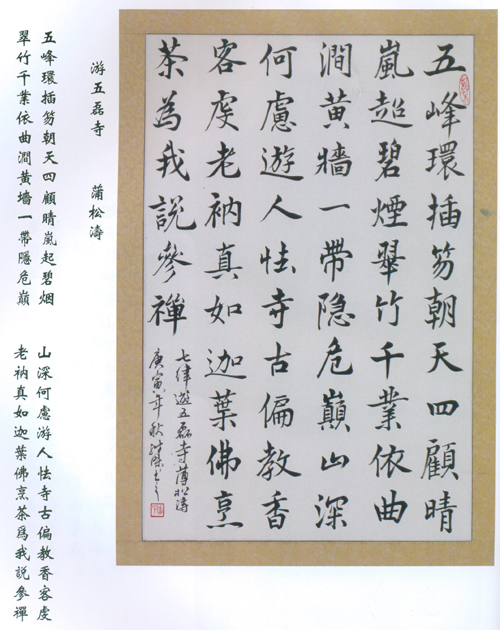 五峰環插笏朝天四顧晴
嵐起碧煙翠竹千業依曲
澗黃牆一帶隐危巔山深
何慮遊人怯寺古偏教香
客虔老衲真如迦葉佛烹
茶為我說參禪
七律遊五磊寺蒲松濤
庚寅年秋
游五磊寺 蒲松濤
五峰環插笏朝天四顧晴嵐起碧烟
翠竹千業依曲澗黃墙一帶隱危巔
山深何慮游人怯寺古偏教香客虔
老衲真如迦葉佛烹茶爲我說參禪